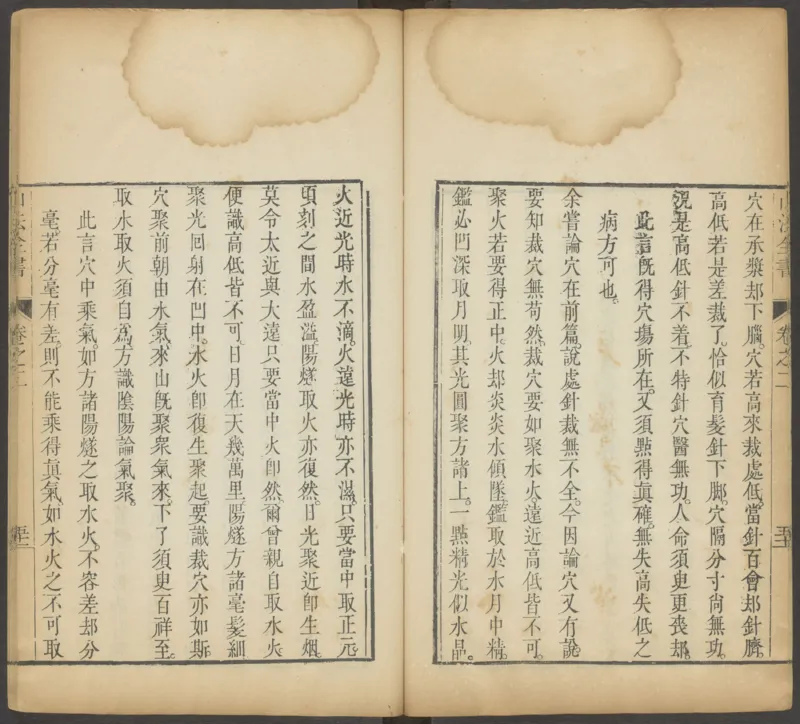 穴在承漿却下腦。穴若高來裁處低。當針百會却針臍。
高低若是差裁了。恰似育髮針下脚。穴隔分寸尙無功。
況是高低針不着。不特針穴醫無功。人命須臾更喪却。
此言旣得穴場所在。又須點得眞確。無失高失低之
病方可也。
余嘗論穴在前篇。說處針裁無不全。今因論穴又有說
要知裁穴無苟然。裁穴要如聚水火。遠近高低皆不可。
聚火若要得正中。火却炎炎水傾墜。鑑取於水月中精。
鑑必凹深取月明。其光圓聚方諸上。一點精光似水晶。
卷之二
火近光時水不滴。火遠光時亦不滋。只要當中取正元。
頃刻之間水盈溢。陽燧取火亦復然。日光聚近卽生烟。
莫令太近與大遠。只要當中火卽然。爾曾親自取水火
便識高低皆不可。日月在天幾萬里。陽燧方諸毫髮細
聚光回射在凹中。水火卽復生聚起。要識裁穴亦如斯。
穴聚前朝由水氣。來山旣聚衆氣來。下了須臾百祥至。
取水取火須自爲。方識陰陽論氣聚。
此言穴中乘氣。如方諸陽燧之取水火。不容差却分
毫。若分毫有差。則不能乘得眞氣。如水火之不可取
山法全書
卷之二